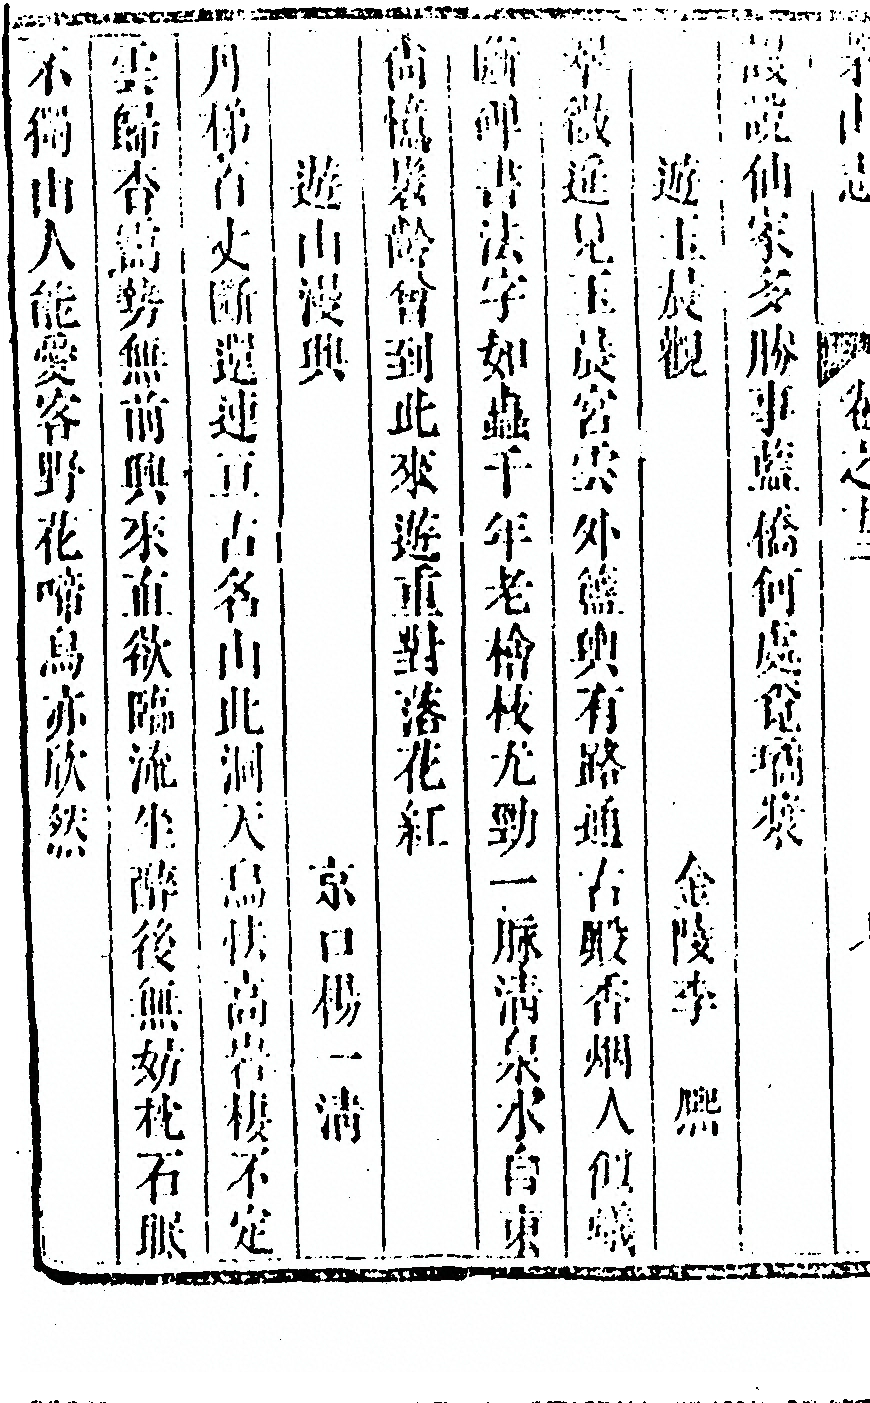 茅山志 卷之十三
設說仙家多勝事藍僑何處覓璚漿
遊玉晨觀 金陵李 熙
翠微遥見玉晨宮雲外籃輿有路通古殿香烟人似蟻
斷碑書法字如蟲千年老檜枝尤勁一脉清泉水自東
尚憶衰齡曾到此來遊重對落花紅
遊山漫興 京口楊一清
丹梯百丈斷還連亘古名山此洞天鳥怯高岩棲不定
雲歸杳嶌勢無前興來直欲臨流坐醉後無妨枕石眠
不獨山人能愛客野花啼鳥亦欣然